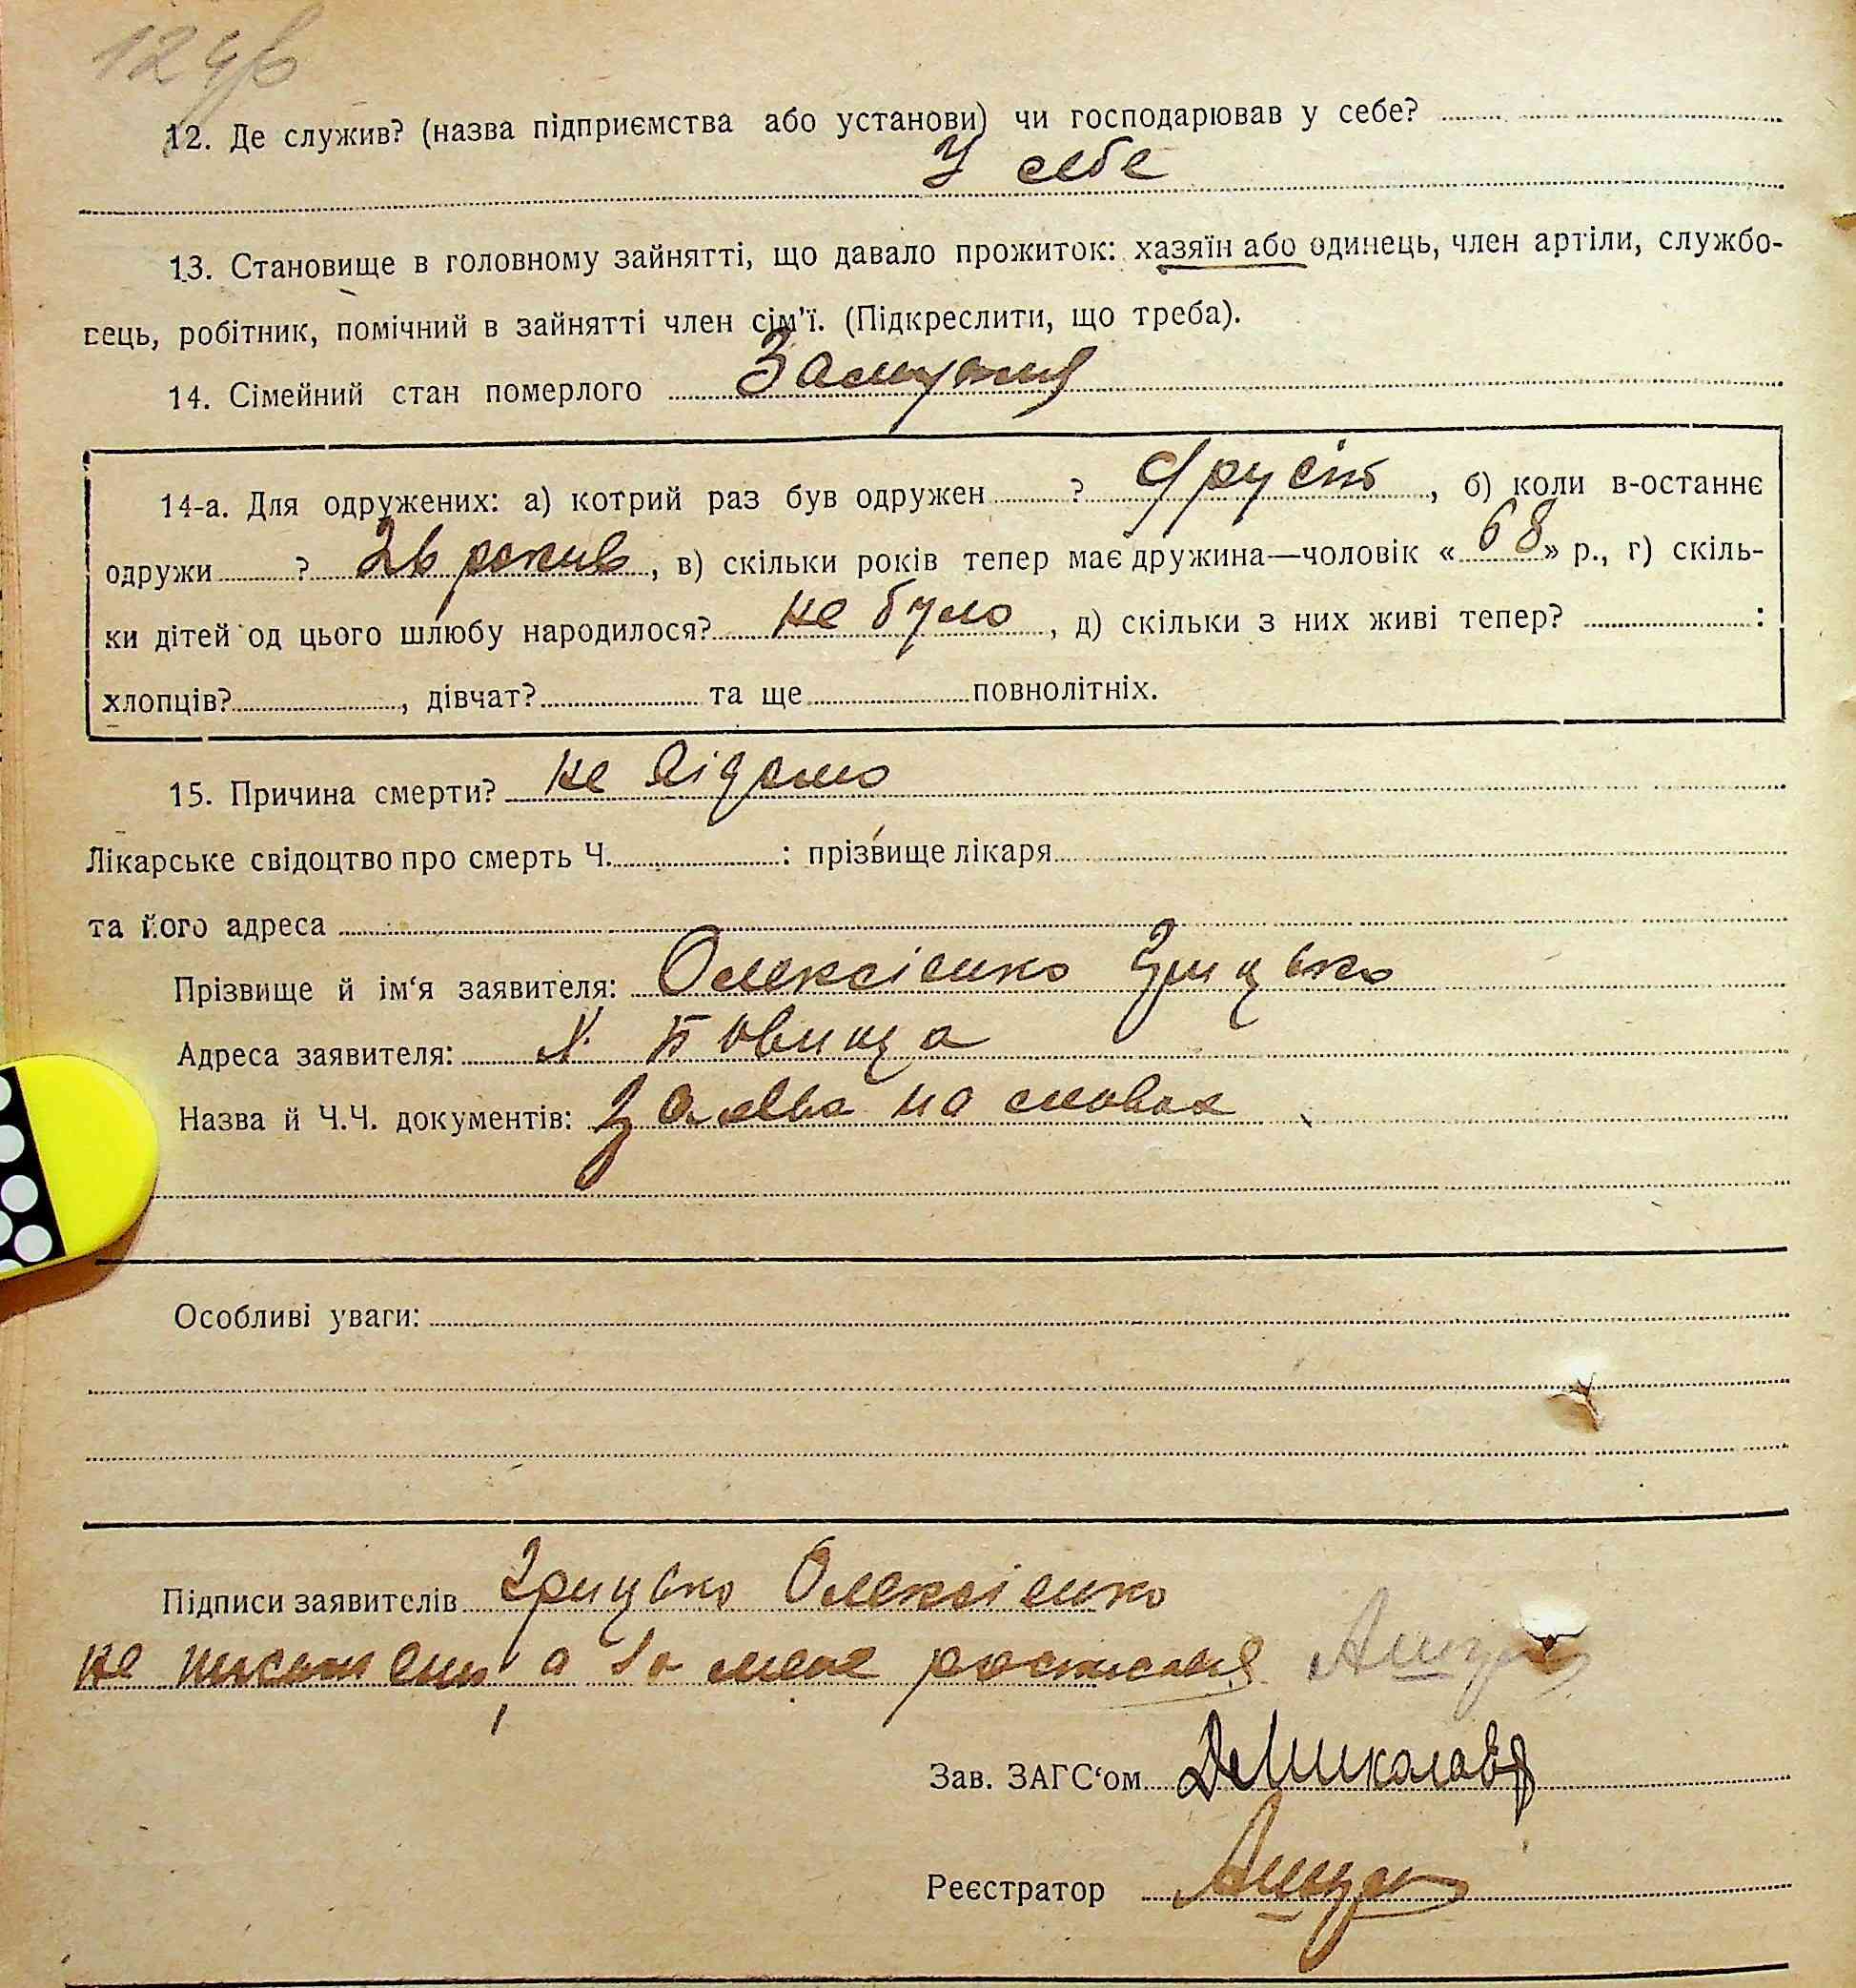 12. Де служив? (назва підприємства або установи) чи господарював у себе?
У себе
13. Становище в головному зайнятті, що давало прожиток: хазяїн або одинець, член артіли, службо-
вець, робітник, помічний в зайнятті член сім'ї. (Підкреслити, що треба).
14. Сімейний стан померлого Замужня
14-а. Для одружених: а) котрий раз був одружен ? , б) коли в-останнє
одружи ? 26 років, в) скільки років тепер має дружина—чоловік «68» р., г) скіль-
ки дітей од цього шлюбу народилося? не було, д) скільки з них живі тепер? :
хлопців? , дівчат? та ще повнолітніх.
15. Причина смерти? не відомо
Лікарське свідоцтво про смерть Ч. : прізвище лікаря
та його адреса
Прізвище й ім'я заявителя: Олексієнко Грицько
Адреса заявителя: х.
Назва й Ч.Ч. документів: на словах
Особливі уваги:
Підписи заявителів Грицько Олексієнко
не а за мене
Зав. ЗАГС'ом
Реєстратор